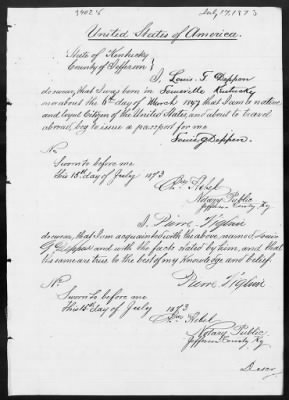 34026
July 17, 1873
United States of America.
State of Kentucky
County of Jefferson }
I, Louis G Deppen
do swear, that I was born in Louisville Kentucky
on or about the 6th day of March 1847 that I am a native,
and loyal Citizen of the United States, and about to travel
abroad, beg to issue a passport for me
Louis G Deppen.
No.
Sworn to before me
this 15th day of July 1873
Notary Public
Jefferson County, Ky
I, Pierre Viglini
do swear, that I am acquainted with the above, named Louis
G Deppen and with the facts stated by him, and that
the same are true to the best of my knowledge and belief.
Pierre Viglini
No.
Sworn to before me
this 15th day of July 1873
Notary Public
Jefferson County Ky.